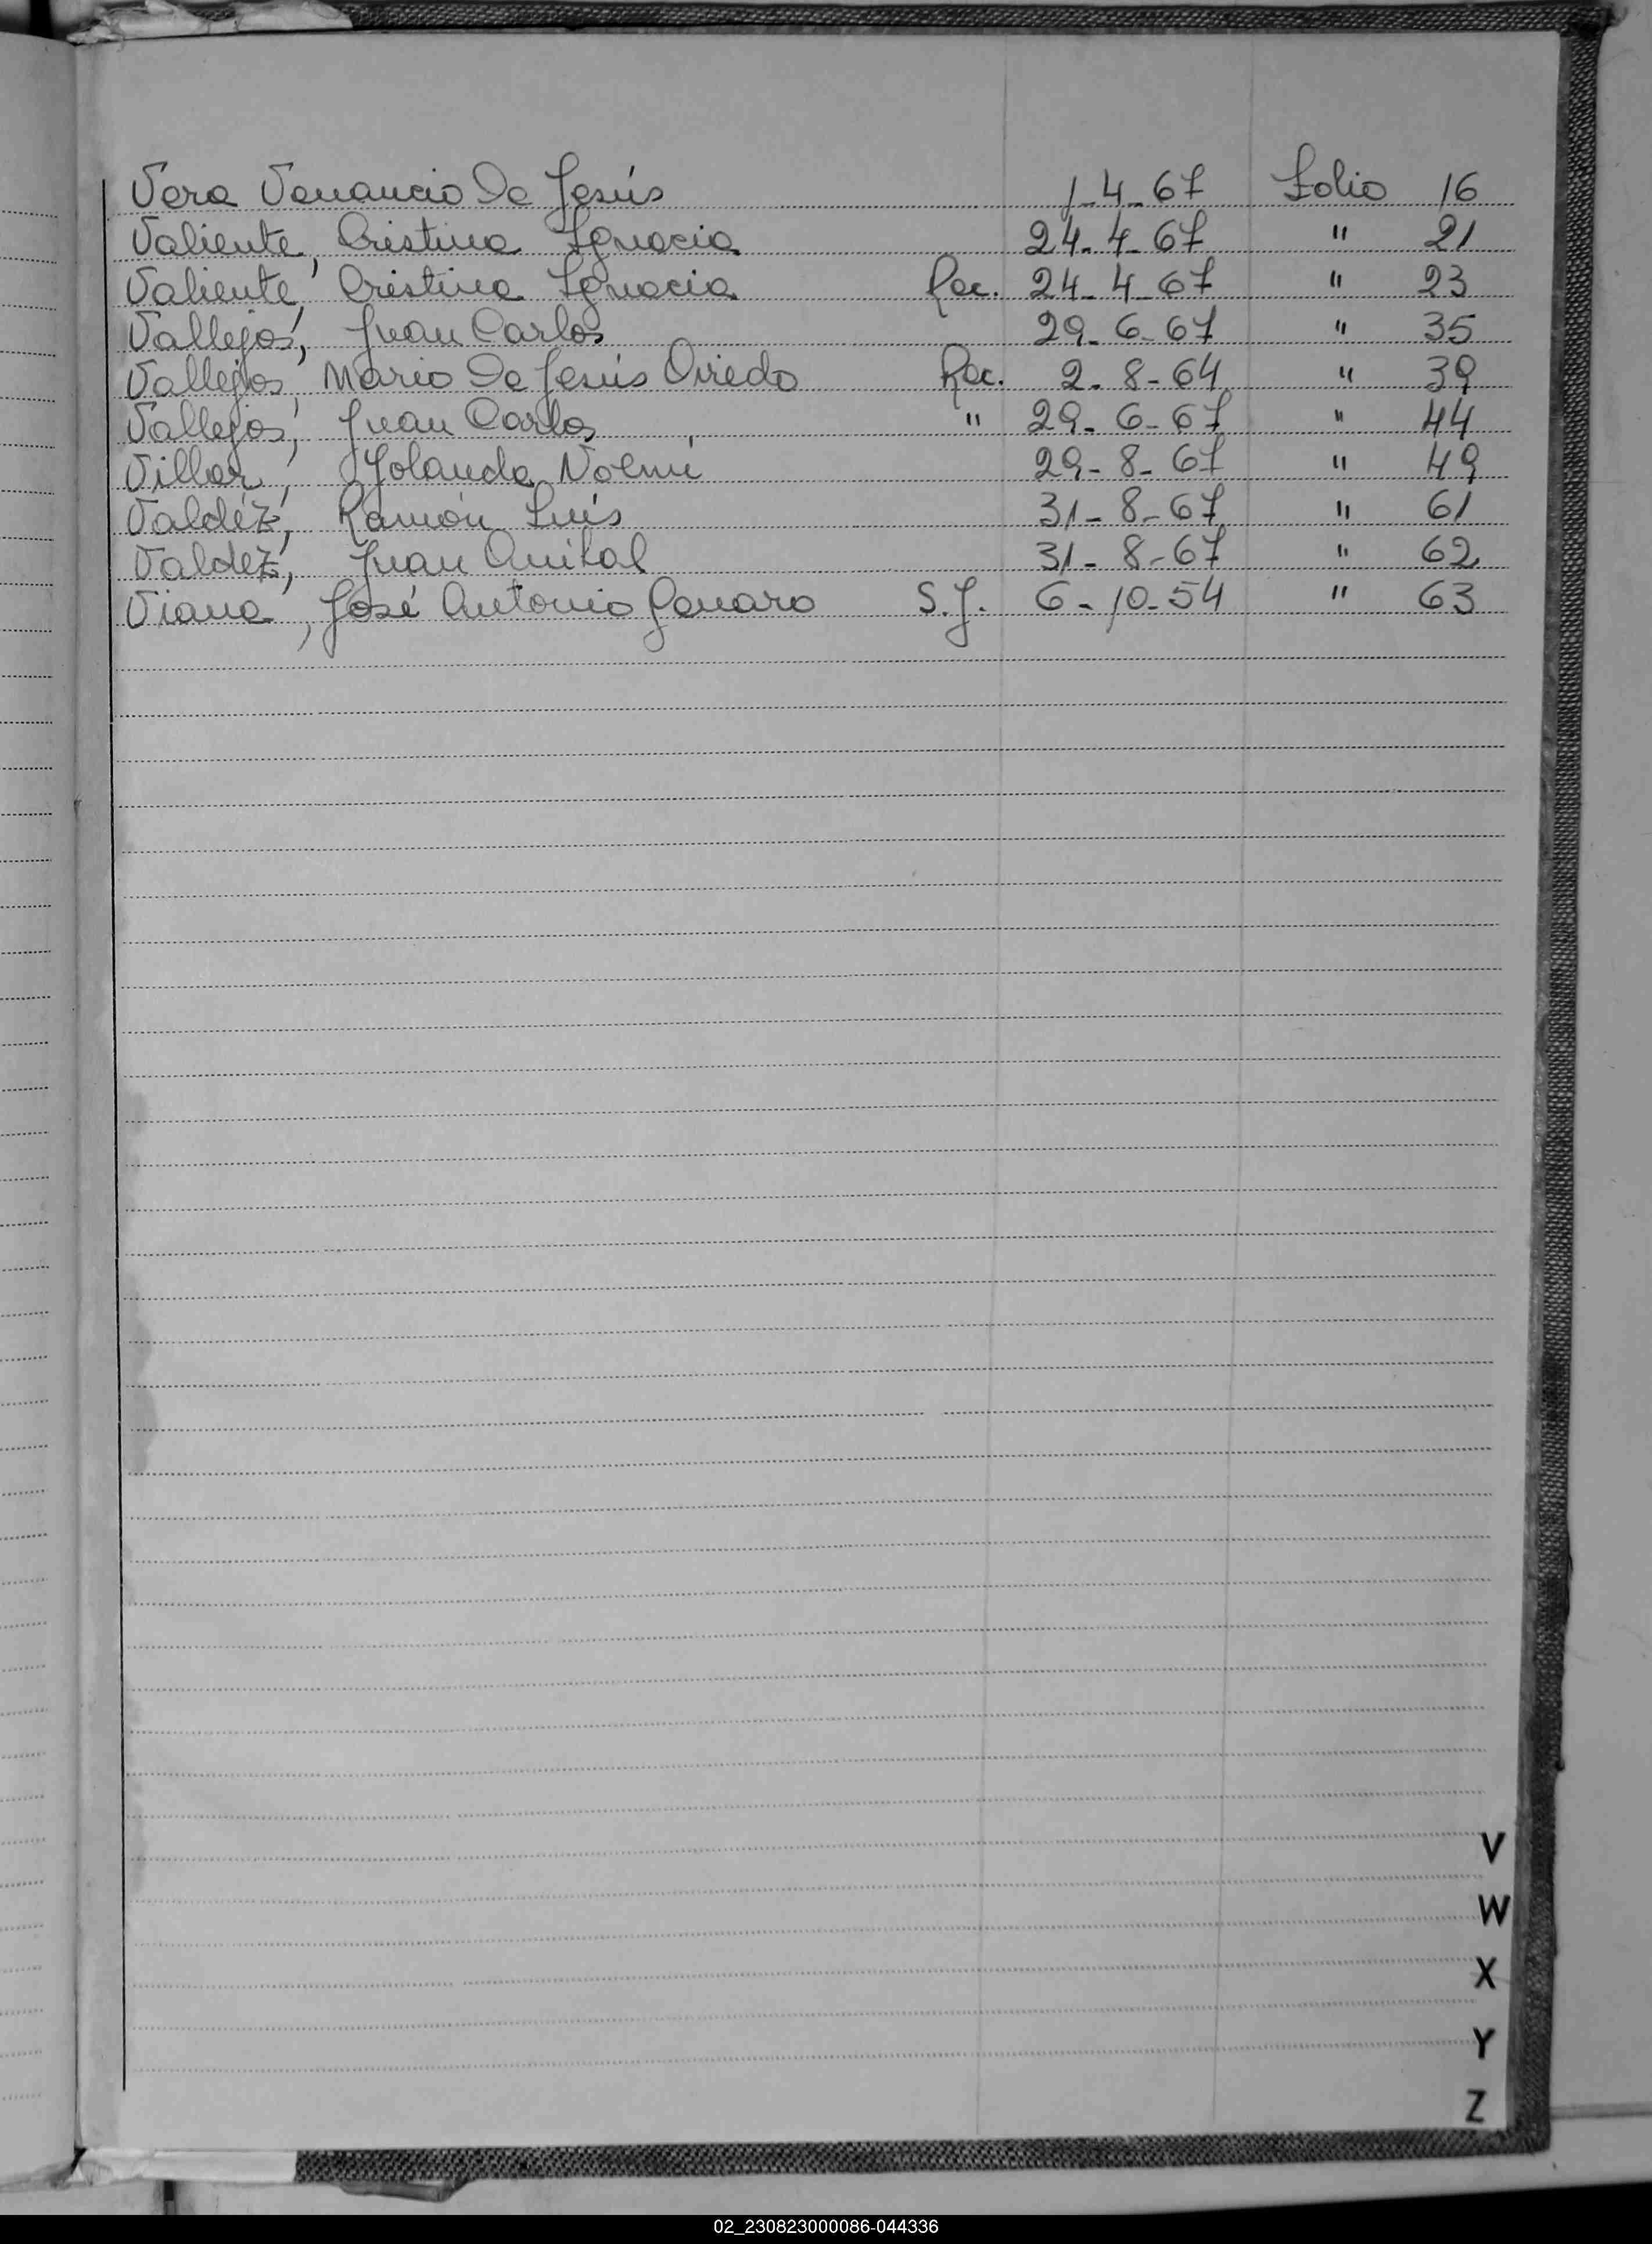 Vera Venancio De Jesús 1-4-67 Folio 16
Valiente, Cristina Ignacia 24-4-67 " 21
Valiente, Cristina Ignacia Rec. 24-4-67 " 23
Vallejos, Juan Carlos 29-6-67 " 35
Vallejos, Mario De Jesús Oviedo Rec. 2-8-64 " 39
Vallejos, Juan Carlos " 29-6-67 " 44
Villar, Yolanda Noemí 29-8-67 " 49
Valdéz, Ramón Luís 31-8-67 " 61
Valdez, Juan Anibal 31-8-67 " 62
Viana, José Antonio Genaro S.J. 6-10-54 " 63
V
W
X
Y
Z
02_230823000086-044336